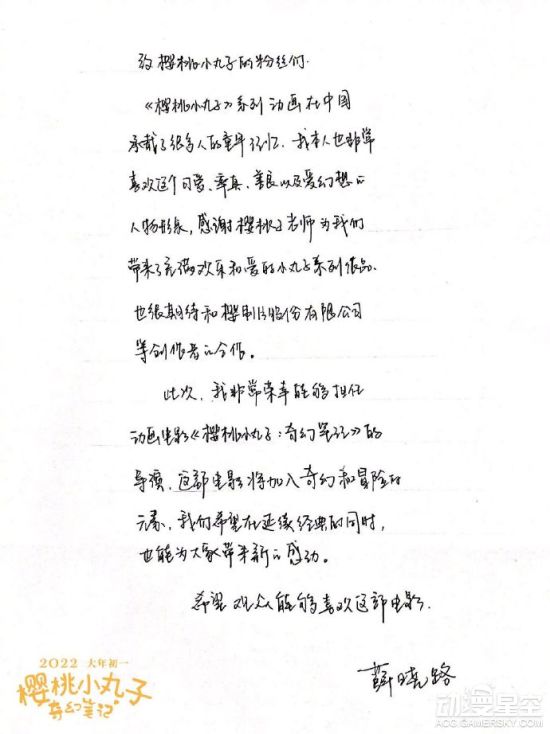 致樱桃小丸子的粉丝们.
《樱桃小丸子》系列动画在中国
承载了很多人的童年记忆、我本人也非常
喜欢这个可爱、率真、善良以及爱幻想的
人物形象，感谢樱桃子老师为我们
带来了充满欢乐和爱的小丸子系列作品.
也很期待和樱制片股份有限公司
等创作者的合作。
此次、我非常荣幸能够担任
动画电影《樱桃小丸子：奇幻笔记》的
导演，这部电影将加入奇幻和冒险的
元素、我们希望在延续经典的同时，
也能为大家带来新的感动。
希望观众能够喜欢这部电影.
薛晓路
2022 大年初一
樱桃小丸子
奇幻笔记
动漫星空
ACG.GAMERSKY.COM